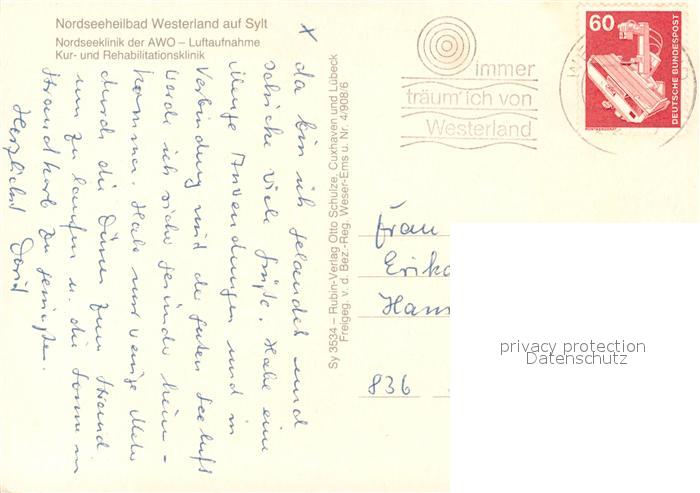 Nordseeheilbad Westerland auf Sylt
Nordseeklinik der AWO – Luftaufnahme
Kur- und Rehabilitationsklinik
x
da bin ich gelandet und
schicke viele Grüße. Habe eine
Menge Anwendungen und in
Verbindung mit der guten Seeluft
werde ich sicher gesünder heim-
kommen. Habe nur wenige Meter
durch die Dünen zum Strand
um zu laufen u. die Sonne im
Strandkorb zu genießen.
Herzlichst
Sy 3534 – Rubin-Verlag Otto Schulze, Cuxhaven und Lübeck
Freigeg. v. d. Bez.-Reg. Weser-Ems u. Nr. 4/908/6
immer
träum' ich von
Westerland
60
DEUTSCHE BUNDESPOST
RÖNTGENGERÄT
Frau
Erika
836
privacy protection
Datenschutz